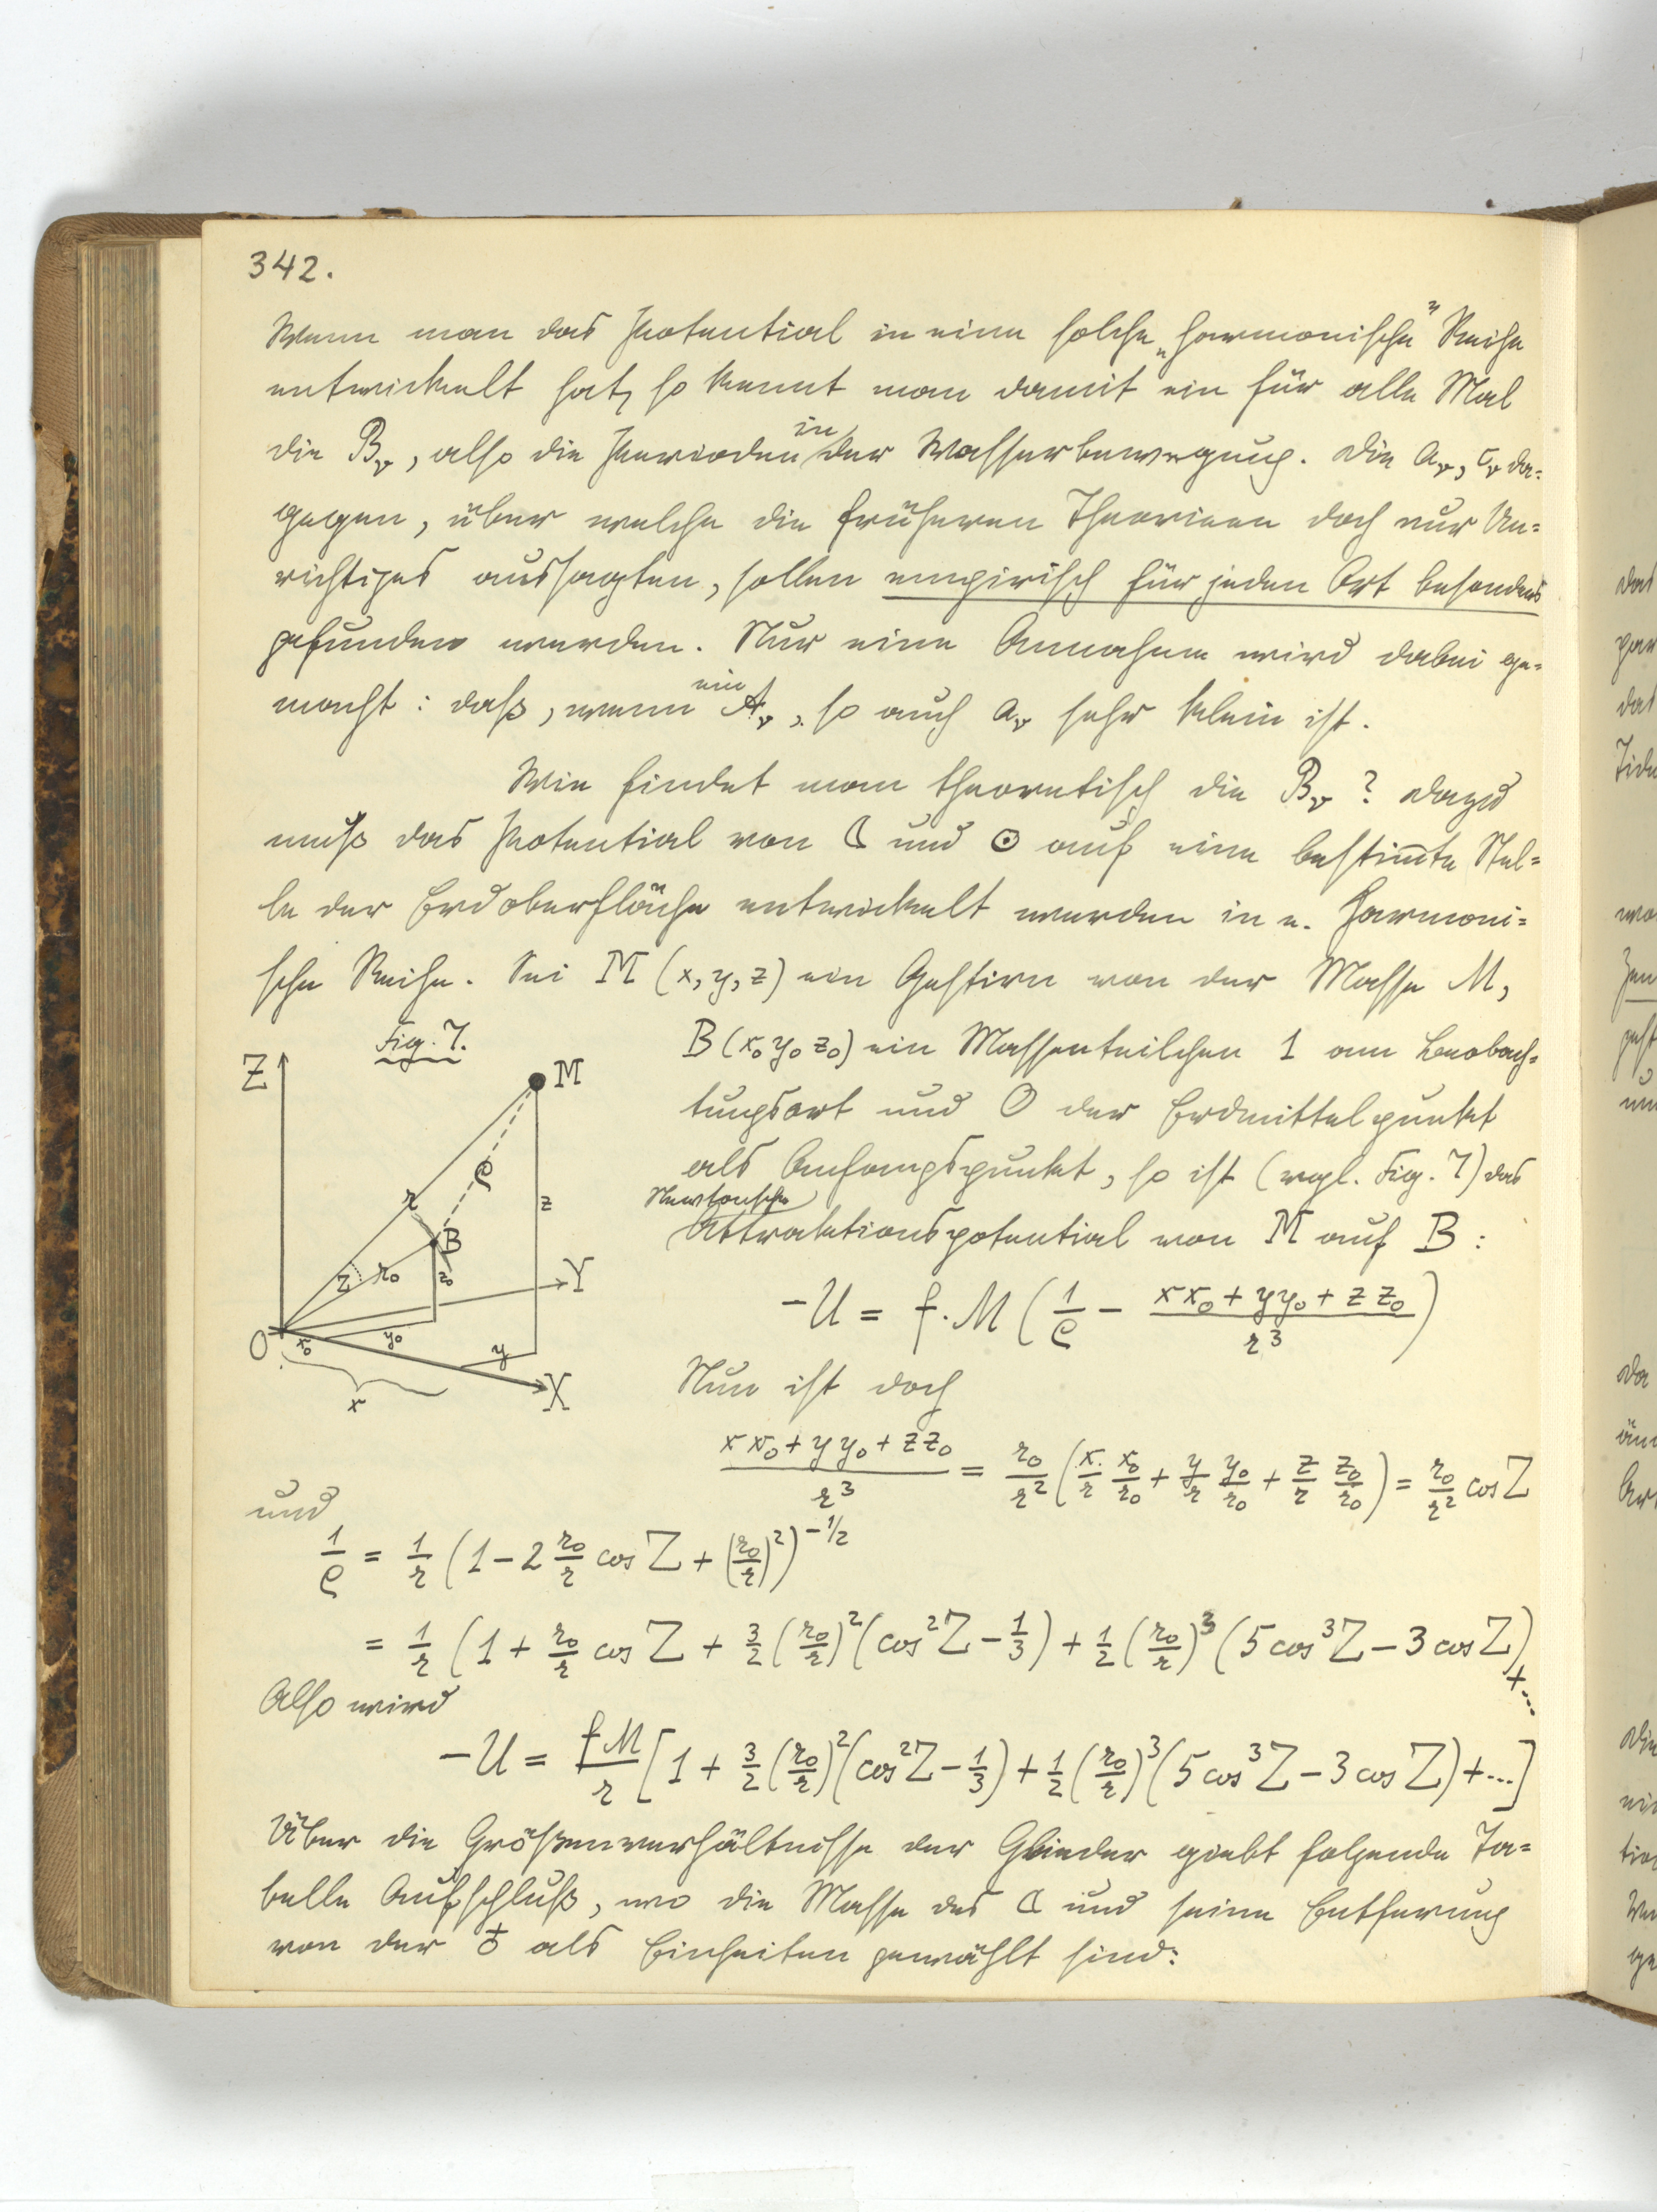 342.
Wenn man das Potential in eine solche „harmonische" Reihe
entwickelt hat, so kennt man damit ein für alle Mal
die B_ν, also die Perioden in der Wasserbewegung. Die a_ν, c_ν da=
gegen, über welche die früheren Theorieen doch nur Un=
richtiges aussagten, sollen empirisch für jeden Ort besonders
gefunden werden. Nur eine Annahme wird dabei ge=
macht: daß, wenn ein A_ν, so auch a_ν sehr klein ist.
Wie findet man theoretisch die B_ν? Dazu
muß das Potential von ☾ und ☉ auf eine bestim̅te Stel=
le der Erdoberfläche entwickelt werden in e. harmoni=
sche Reihe. Sei M (x, y, z) ein Gestirn von der Masse M,
Fig. 7.
B (x₀ y₀ z₀) ein Massenteilchen 1 am Beobach=
tungsort und O der Erdmittelpunkt
als Anfangspunkt, so ist (vgl. Fig. 7) das
Newtonsche
Attraktionspotential von M auf B:
Z
M
ρ
r
z
B
Z r₀ z₀
Y
O
x₀ y₀ y
X
x
−U = f·M (1/ρ − (xx₀ + yy₀ + zz₀)/r³)
Nun ist doch
(xx₀ + yy₀ + zz₀)/r³ = r₀/r² (x/r x₀/r₀ + y/r y₀/r₀ + z/r z₀/r₀) = r₀/r² cos Z
und
1/ρ = 1/r (1 − 2 r₀/r cos Z + (r₀/r)²)^−1/2
= 1/r (1 + r₀/r cos Z + 3/2 (r₀/r)² (cos²Z − 1/3) + 1/2 (r₀/r)³ (5 cos³Z − 3 cos Z) + ...
Also wird
−U = fM/r [1 + 3/2 (r₀/r)² (cos²Z − 1/3) + 1/2 (r₀/r)³ (5 cos³Z − 3 cos Z) + ...]
Über die Größenverhältnisse der Glieder giebt folgende Ta=
belle Aufschluß, wo die Masse des ☾ und seine Entfernung
von der ♁ als Einheiten gewählt sind: